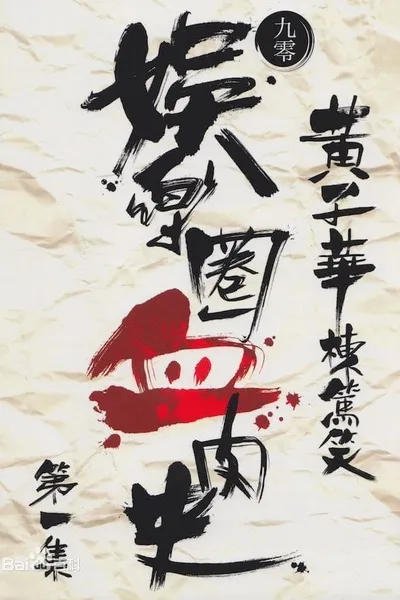 九零
黃子華棟篤笑
娛樂圈血肉史
第一集
Baidu百科